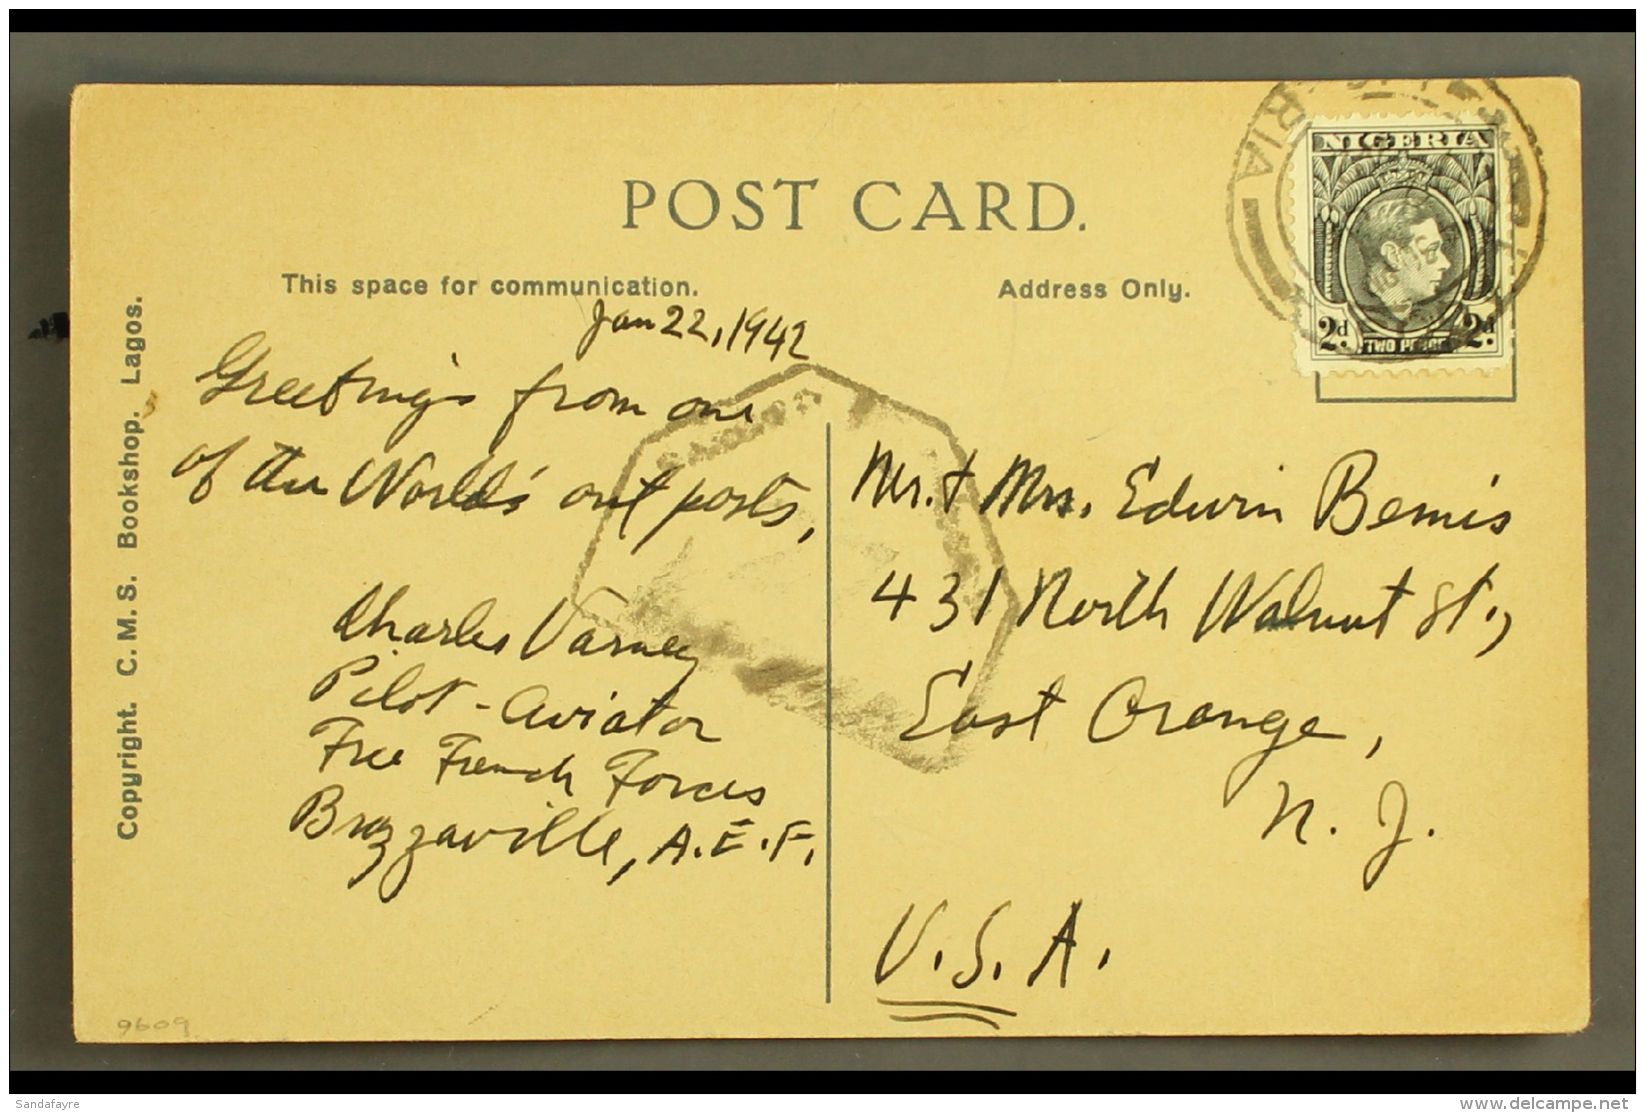 POST CARD.
This space for communication.
Address Only.
Jan 22, 1942
Greetings from one
of the World's out posts,
Charles Varney
Pilot - Aviator
Free French Forces
Brazzaville, A.E.F.
Mr. + Mrs. Edwin Bemis
431 North Walnut St.,
East Orange,
N. J.
U.S.A.
NIGERIA
2d 2d
TWO PENCE
RIA
Copyright. C. M. S. Bookshop. Lagos.
9609
Sandafayre
www.delcampe.net